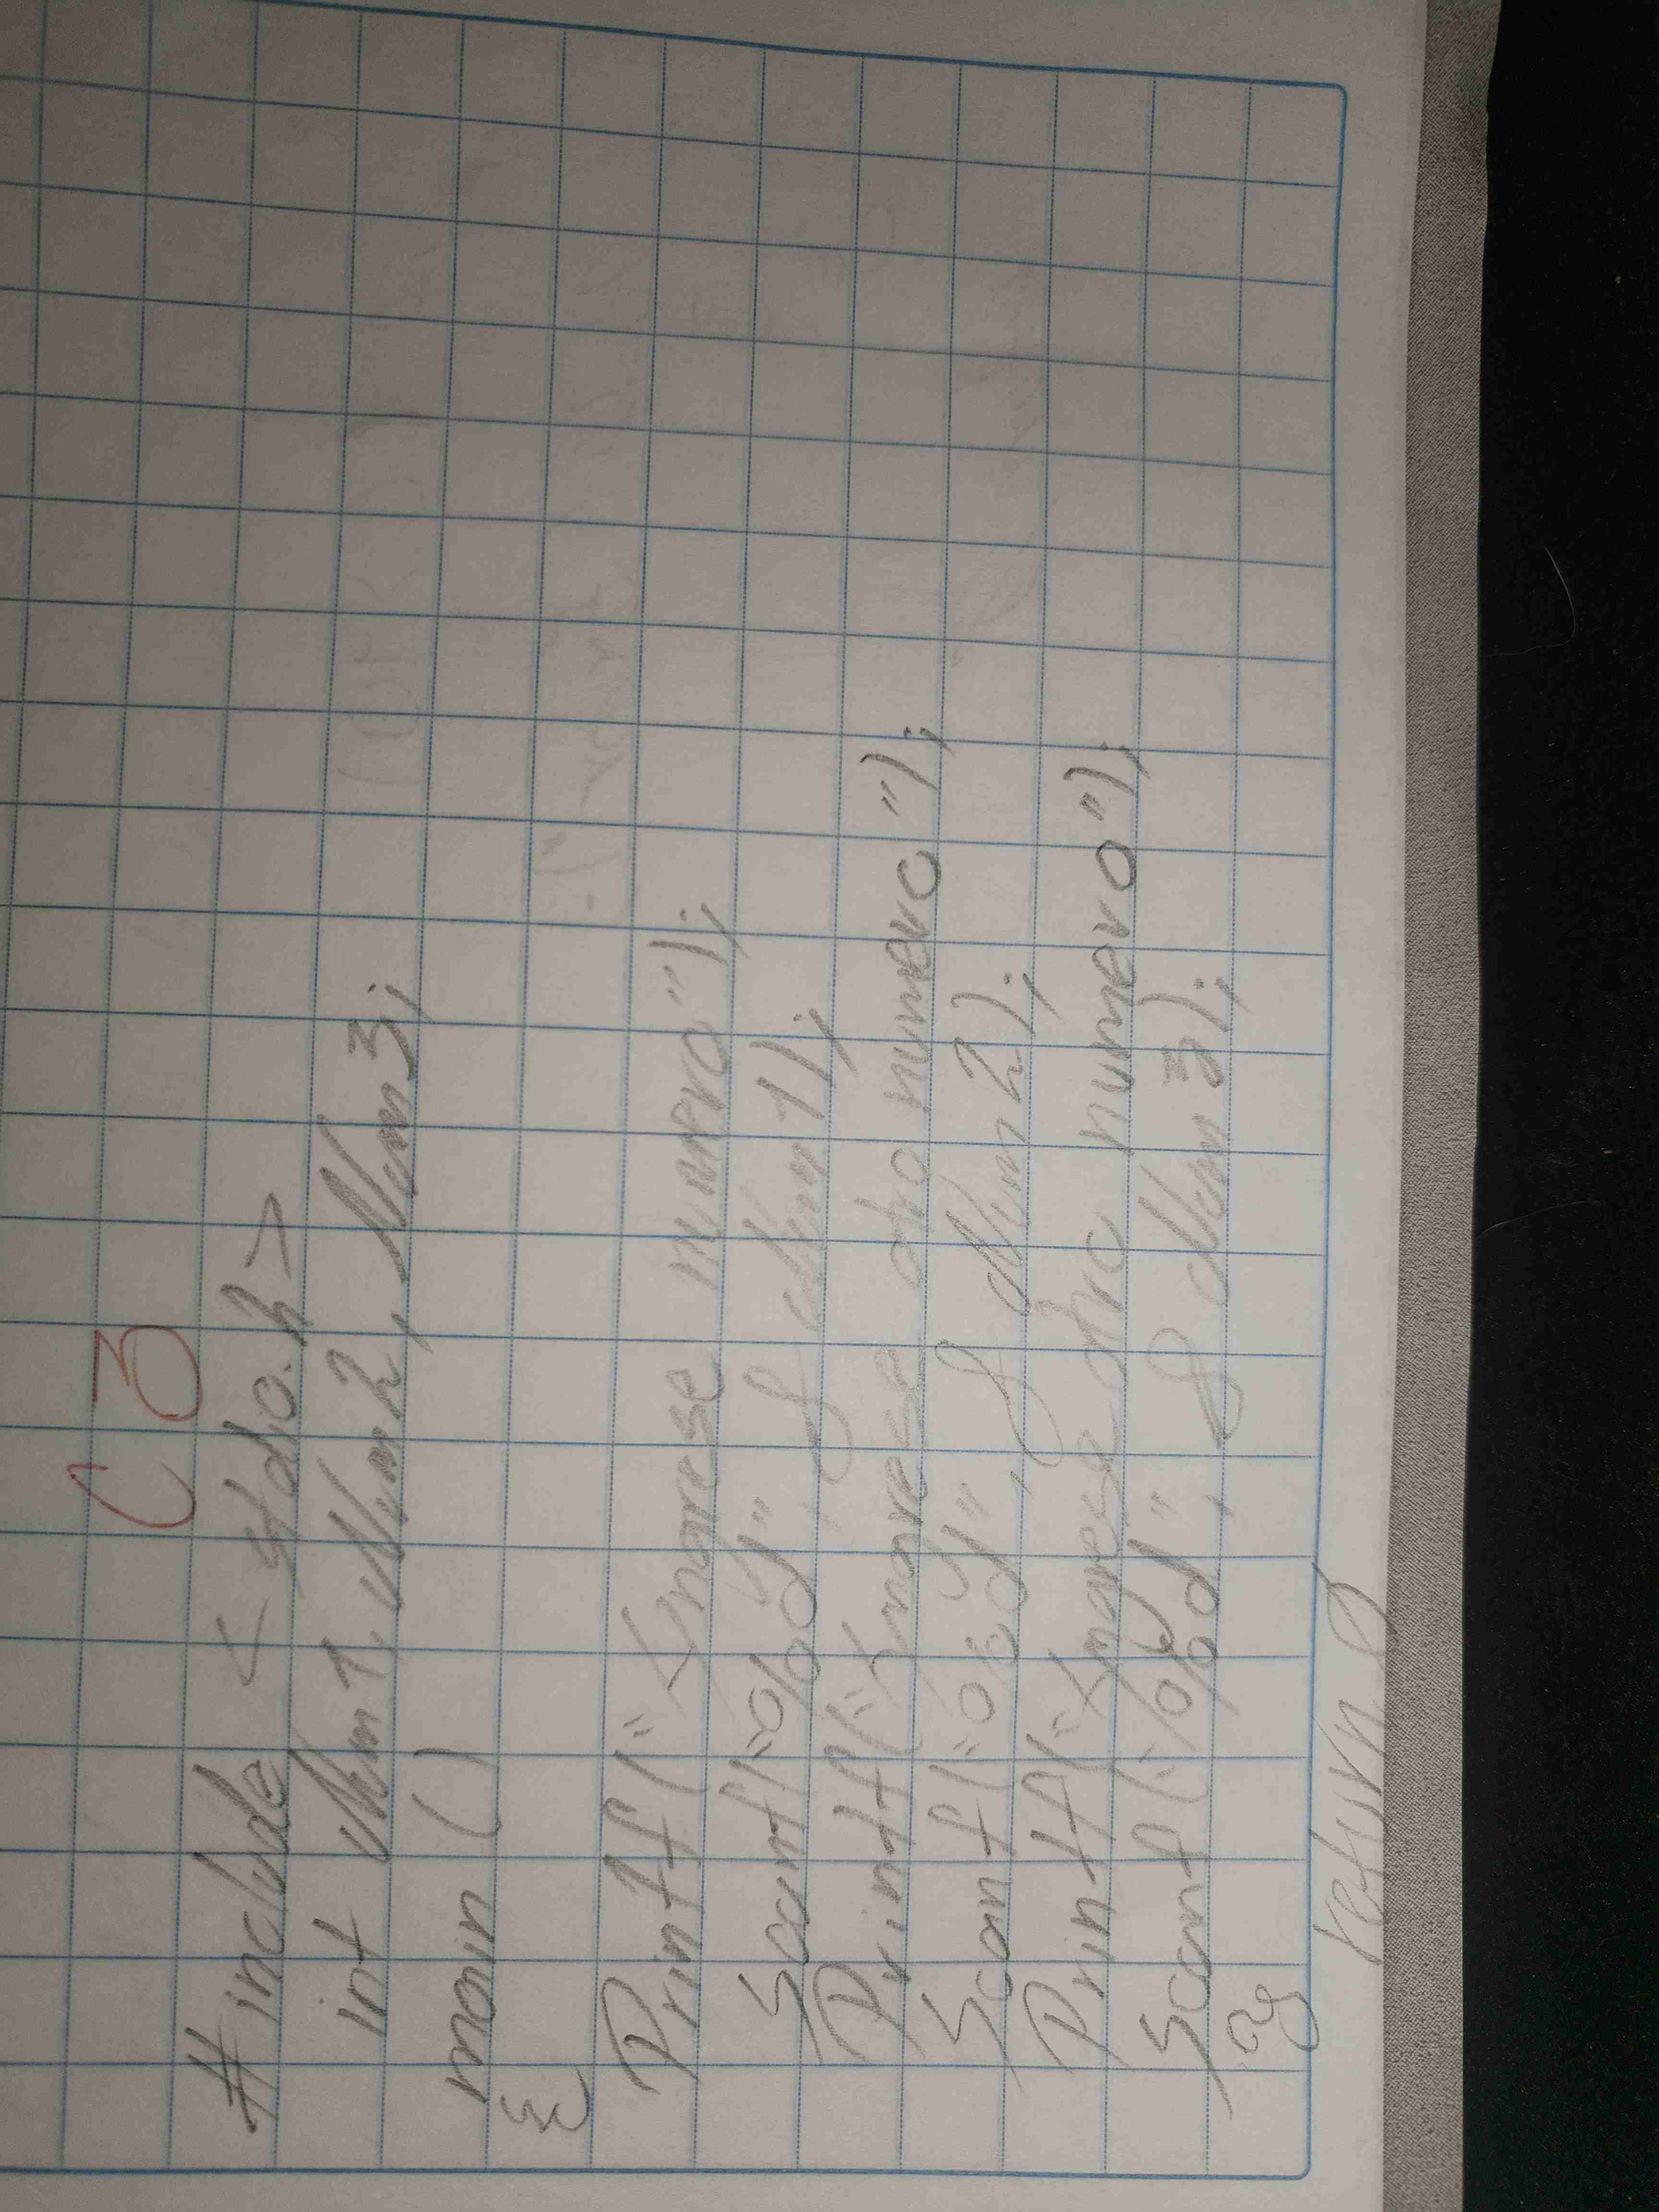 C3
#include <stdio.h>
int Num1, Num2, Num3;
main ()
{
Printf(" Ingrese numero");
Scanf("%d", & Num1);
Printf("Ingrese otro numero");
Scanf("%d", & Num2);
Printf("Ingrese otro numero");
Scanf("%d", & Num3);
return 0